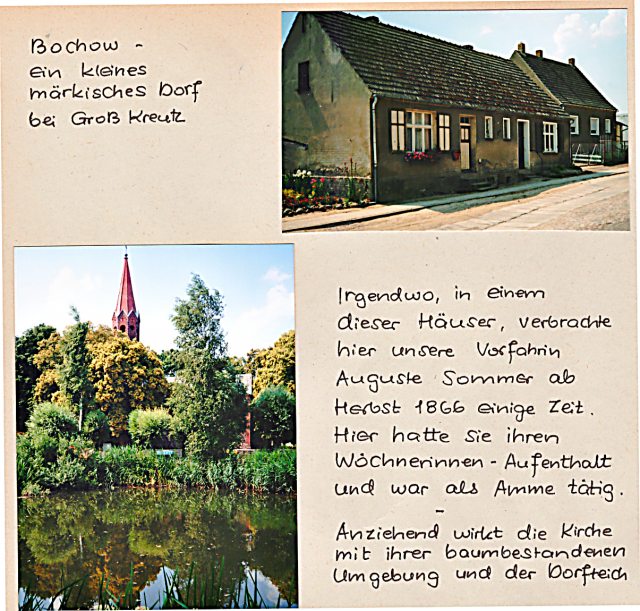 Bochow -
ein kleines
märkisches Dorf
bei Groß Kreutz
Irgendwo, in einem
dieser Häuser, verbrachte
hier unsere Vorfahrin
Auguste Sommer ab
Herbst 1866 einige Zeit.
Hier hatte sie ihren
Wöchnerinnen-Aufenthalt
und war als Amme tätig.
-
Anziehend wirkt die Kirche
mit ihrer baumbestandenen
Umgebung und der Dorfteich